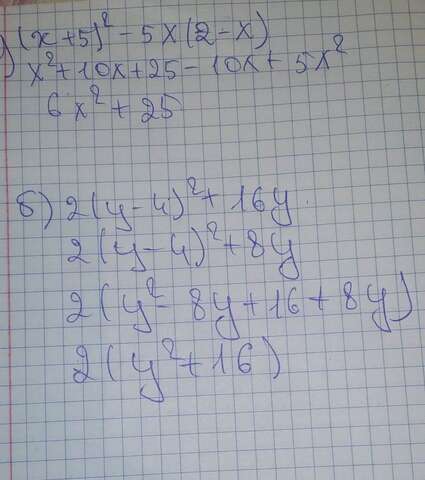 ) (x+5)² - 5x(2-x)
x² + 10x + 25 - 10x + 5x²
6x² + 25
б) 2(y-4)² + 16y
2(y-4)² + 8y
2(y² - 8y + 16 + 8y)
2(y² + 16)